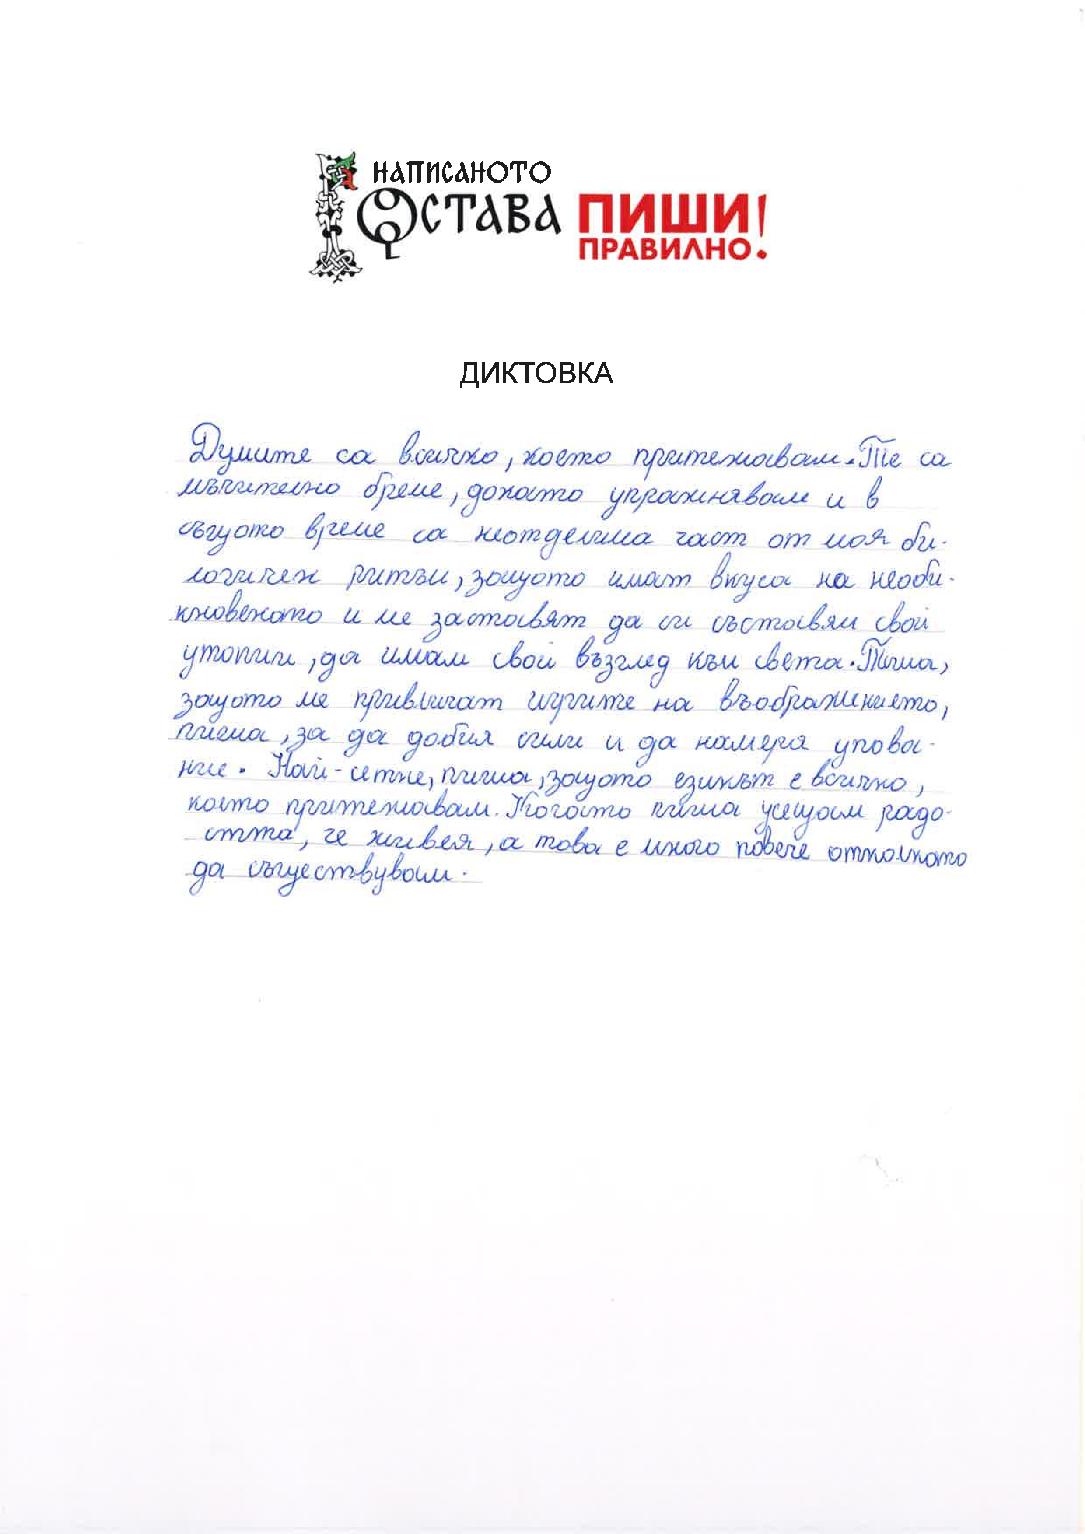 НАПИСАНОТО
ОСТАВА ПИШИ
ПРАВИЛНО!
ДИКТОВКА
Думите са всичко, което притежавам. Те са
мъчително бреме, докато упражнявам и в
същото време са неотделима част от моя би-
логичен ритъм, защото имат вкуса на необи-
кновеното и ме заставят да си съставям свой
утопии, да имам свой възглед към света. Пиша,
защото ме привличат игрите на въображението,
пиша, за да добия сили и да намеря упова-
ние. Най-сетне, пиша, защото езикът е всичко,
което притежавам. Когато пиша усещам радо-
стта, че живея, а това е много повече отколкото
да съществувам.